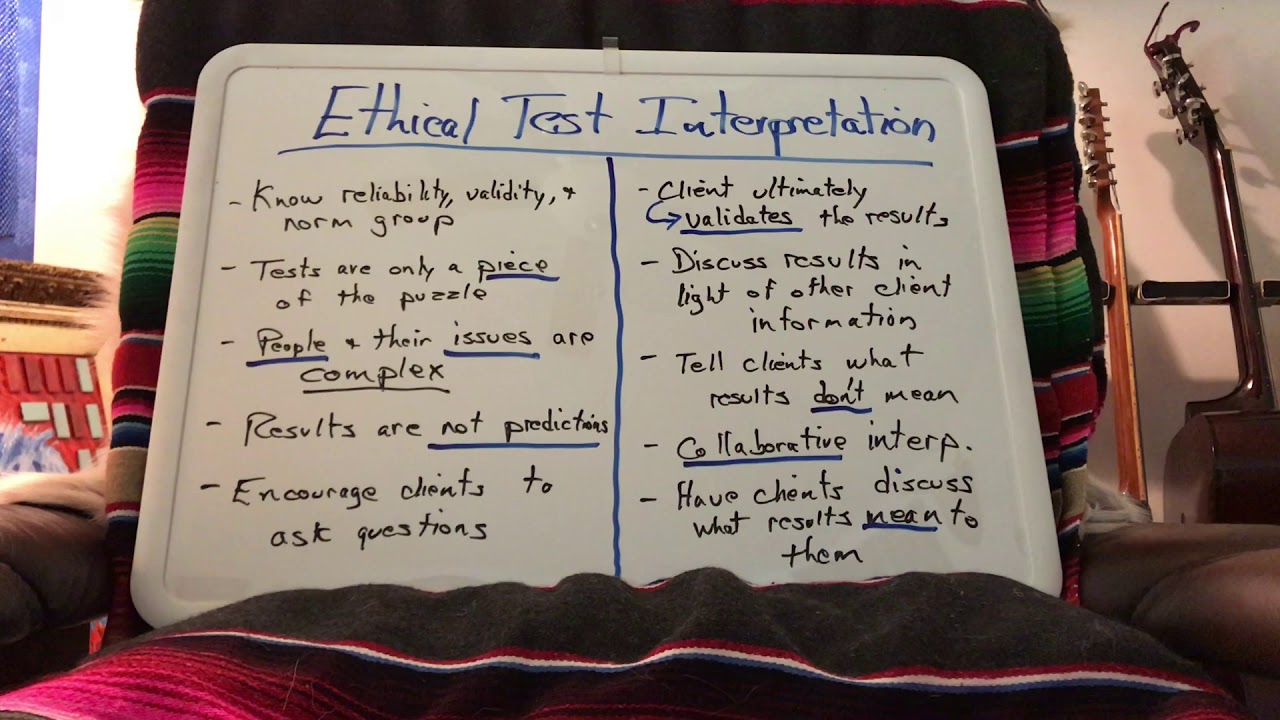 Ethical Test Interpretation
- Know reliability, validity, +
norm group
- Tests are only a piece
of the puzzle
- People + their issues are
complex
- Results are not predictions
- Encourage clients to
ask questions
- Client ultimately
↳ validates the results
- Discuss results in
light of other client
information
- Tell clients what
results don't mean
- Collaborative interp.
- Have clients discuss
what results mean to
them